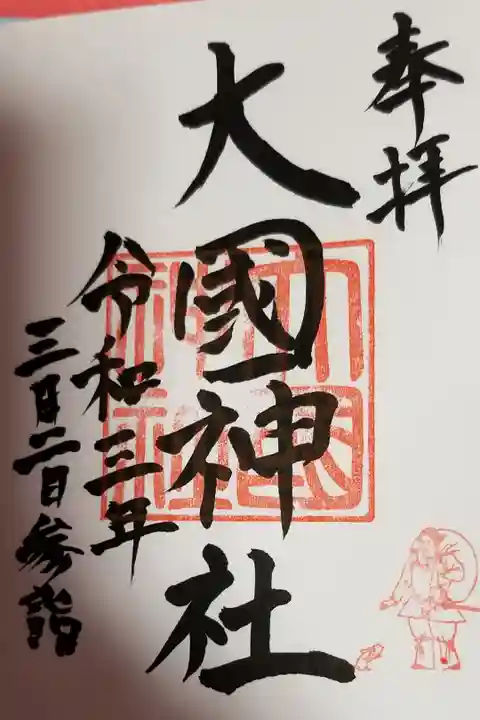 奉拝
大國神社
令和三年
三月二日参詣